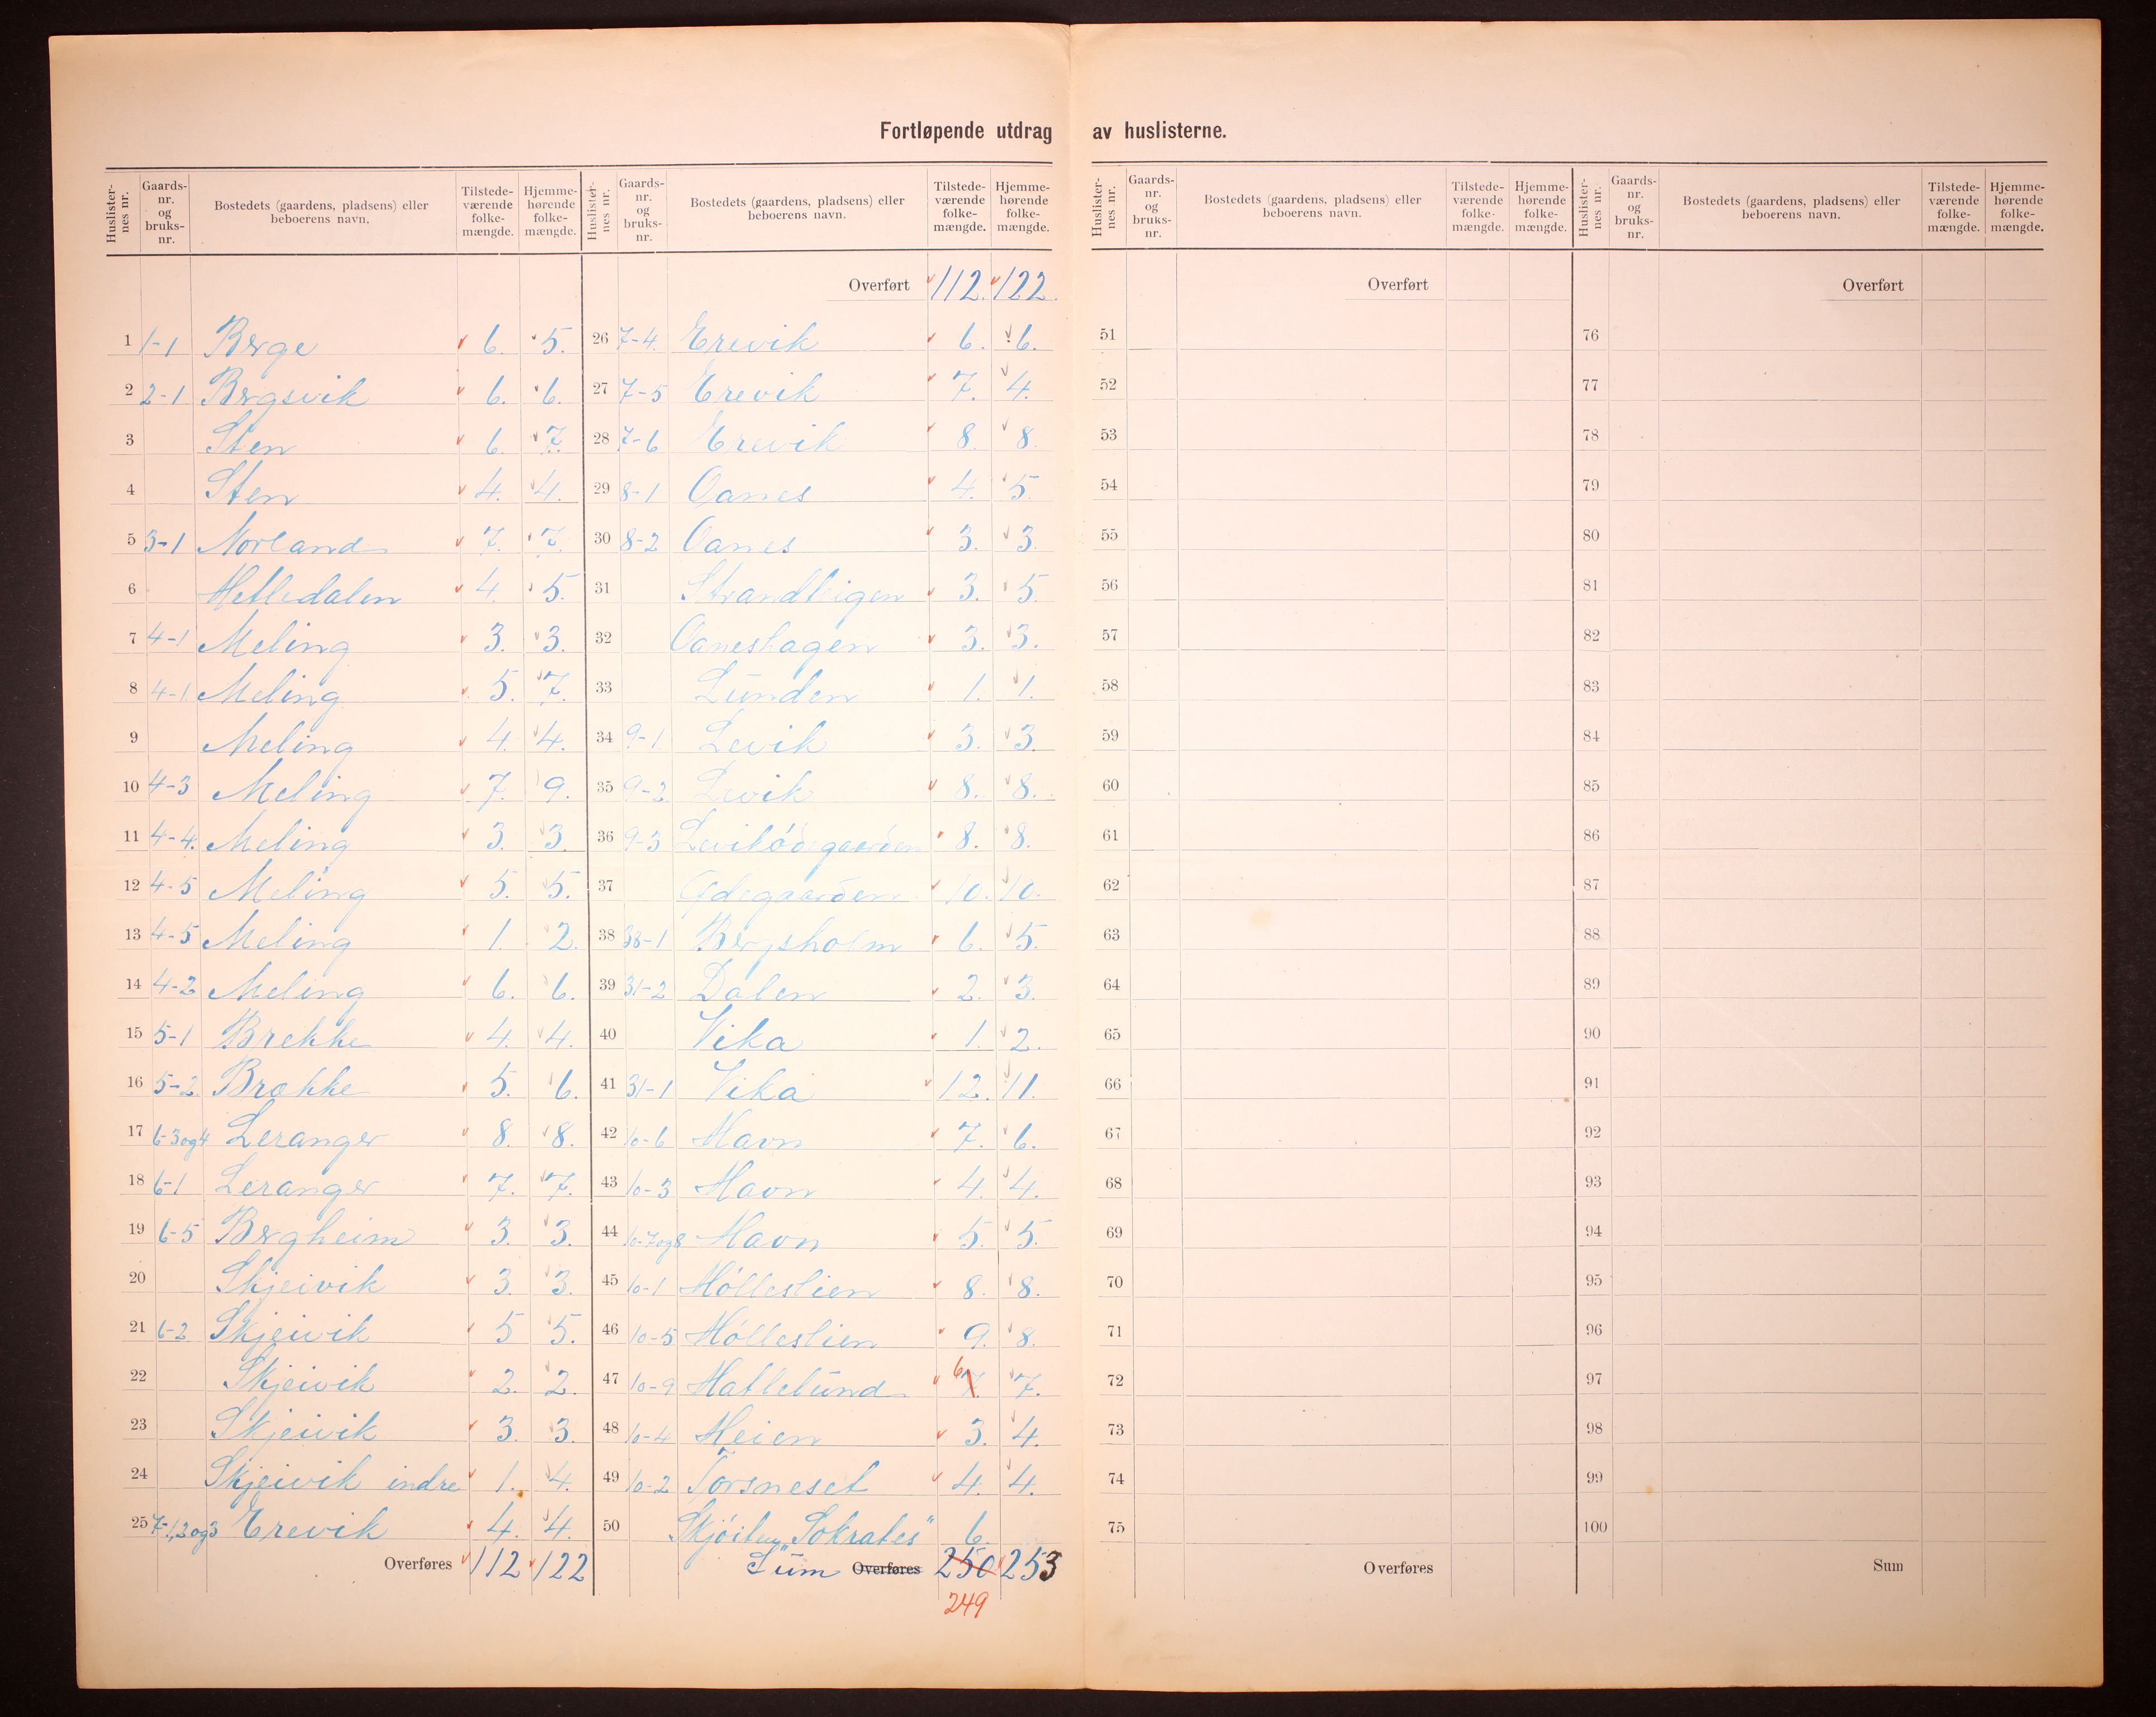 Fortløpende utdrag av huslisterne.
Huslister-nes nr. Gaards-nr. og bruks-nr. Bostedets (gaardens, pladsens) eller beboerens navn. Tilstede-værende folke-mængde. Hjemme-hørende folke-mængde.
1 1-1 Berge 6. 5.
2 2-1 Bergsvik 6. 6.
3 Sten 6. 7.
4 Sten 4. 4.
5 3-1 Norland 7. 7.
6 Hetledalen 4. 5.
7 4-1 Meling 3. 3.
8 4-1. Meling 5. 7.
9 Meling 4. 4.
10 4-3 Meling 7. 9.
11 4-4. Meling 3. 3.
12 4-5 Meling 5. 5.
13 4-5 Meling 1. 2.
14 4-2 Meling 6. 6.
15 5-1 Brekke 4. 4.
16 5-2. Brekke 5. 6.
17 6-3og4 Leranger 8. 8.
18 6-1 Leranger 7. 7.
19 6-5 Bergheim 3. 3.
20 Skjeivik 3. 3.
21 6-2 Skjeivik 5 5.
22 Skjeivik 2. 2.
23 Skjeivik 3. 3.
24 Skjeivik indre 1. 4.
25 7-1,2og3 Erevik 4. 4.
Overføres 112 122
Huslister-nes nr. Gaards-nr. og bruks-nr. Bostedets (gaardens, pladsens) eller beboerens navn. Tilstede-værende folke-mængde. Hjemme-hørende folke-mængde.
Overført 112. 122.
26 7-4. Erevik 6. 6.
27 7-5 Erevik 7. 4.
28 7-6 Erevik 8. 8.
29 8-1 Oanes 4. 5.
30 8-2 Oanes 3. 3.
31 3. 5.
32 Oaneshagen 3. 3.
33 Lunden 1. 1.
34 9-1. Levik 3. 3.
35 9-2 Levik 8. 8.
36 9-3 Levikødegaarden 8. 8.
37 Ødegaarden 10. 10.
38 38-1 Bergsholm 6. 5.
39 31-2 Dalen 2. 3.
40 Vika 1. 2.
41 31-1 Vika 12. 11.
42 10-6 Havn 7. 6.
43 10-3 Havn 4. 4.
44 10-7og8 Havn 5. 5.
45 10-1 Hølleslien 8. 8.
46 10-5 Hølleslien 9. 8.
47 10-9 Hatlelund 6 7. 7.
48 10-4 Heien 3. 4.
49 10-2 Torsneset 4. 4.
50 "Sokrates" 6.
Sum Overføres 250 253
249
Huslister-nes nr. Gaards-nr. og bruks-nr. Bostedets (gaardens, pladsens) eller beboerens navn. Tilstede-værende folke-mængde. Hjemme-hørende folke-mængde.
Overført
51
52
53
54
55
56
57
58
59
60
61
62
63
64
65
66
67
68
69
70
71
72
73
74
75
Overføres
Huslister-nes nr. Gaards-nr. og bruks-nr. Bostedets (gaardens, pladsens) eller beboerens navn. Tilstede-værende folke-mængde. Hjemme-hørende folke-mængde.
Overført
76
77
78
79
80
81
82
83
84
85
86
87
88
89
90
91
92
93
94
95
96
97
98
99
100
Sum